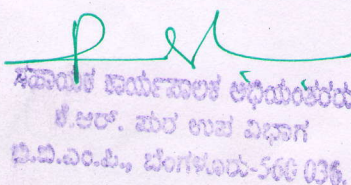 ಸಹಾಯಕ ಕಾರ್ಯಪಾಲಕ ಅಭಿಯಂತರರು
ಕೆ.ಆರ್. ಪುರ ಉಪ ವಿಭಾಗ
ಬಿ.ಬಿ.ಎಂ.ಪಿ., ಬೆಂಗಳೂರು-560 036.